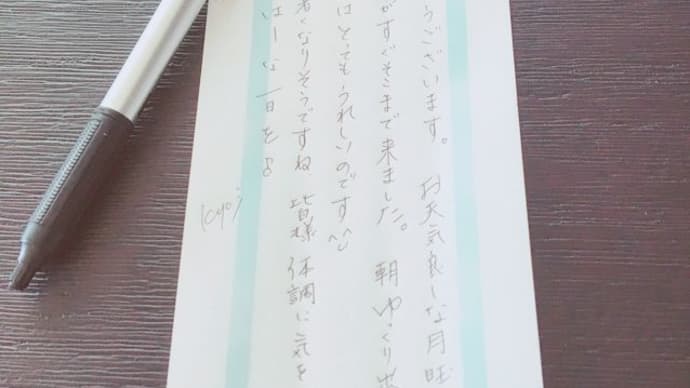 うございます。 お天気良しな月曜
がすぐそこまで来ました。 朝ゆっくり出
はとってもうれしいのです^^
着くなりそうですね、皆様体調に気を
はしな一日をよ
(cyo)